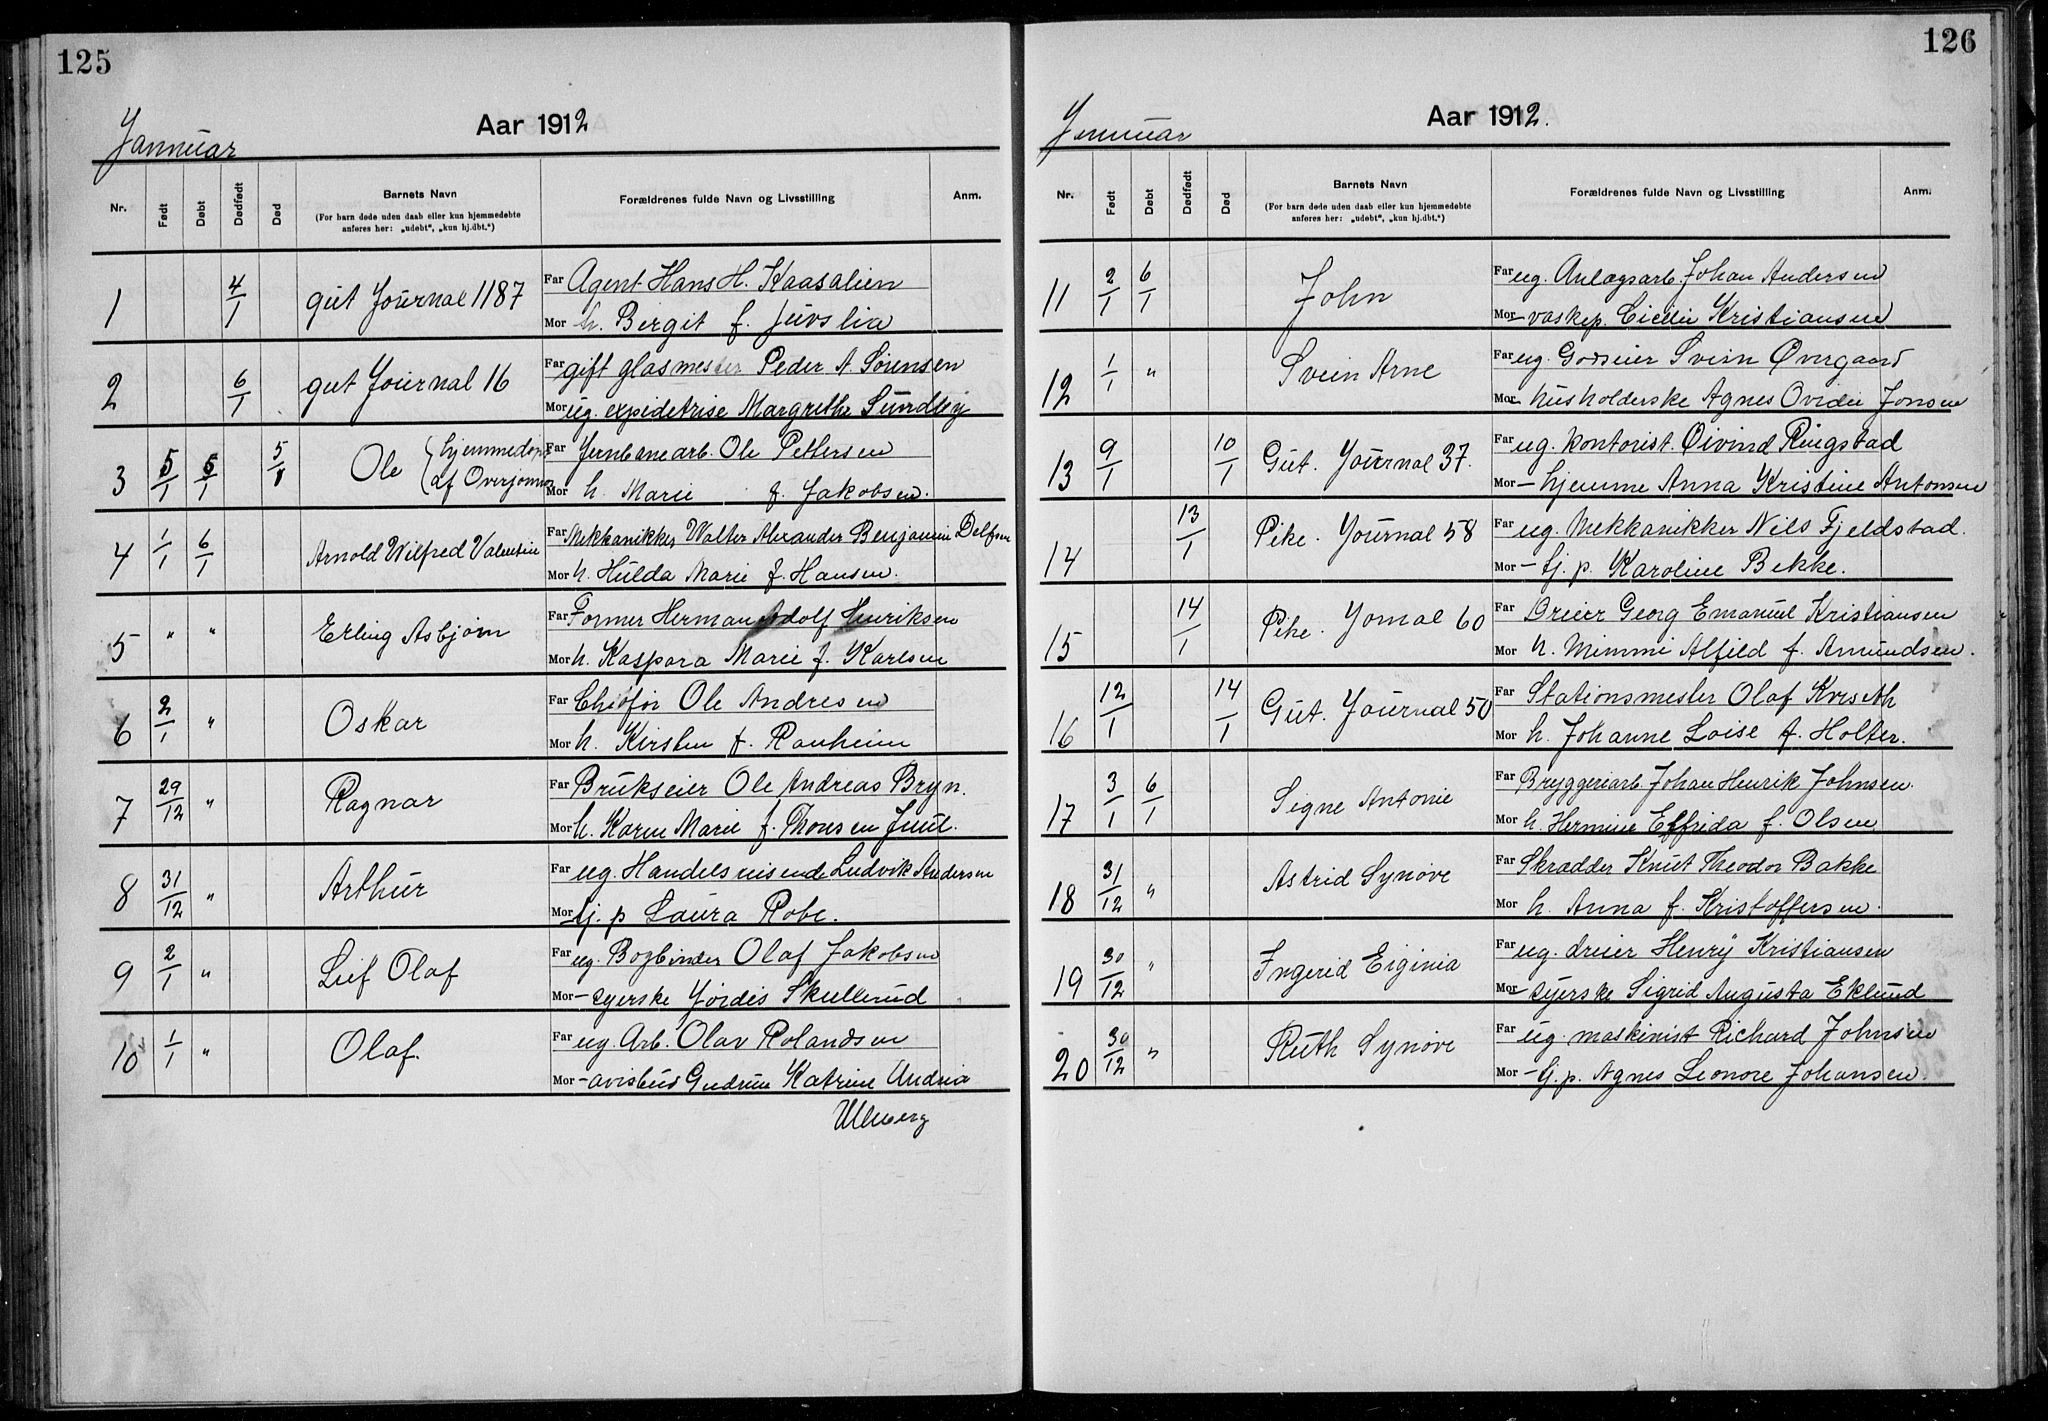 125
Aar 1912
Jannuar
Nr. Født Døbt Dødfødt Død Barnets Navn Forældrenes fulde Navn og Livsstilling Anm.
(For barn døde uden daab eller kun hjemmedøbte
anføres her: „udøbt“, „kun hj.dbt.“)
1 4/1 gut Journal 1187 Far Agent Hans H. Kaasalien
Mor h. Bergit f. Juvslia
2 6/1 gut Journal 16 Far gift glasmester Peder A Sørensen
Mor ug. expeditrise Margrethe Sundby
3 5/1 5/1 5/1 Ole (hjemmedøpt Far Jernbanearb. Ole Pettersen
af Overjormor Mor h. Marie f. Jakobsen.
4 1/1 6/1 Arnold Wilfred Valentin Far Mekkanikker Walter Alexander Benjamin Delfsen
Mor h. Hulda Marie f. Hansen.
5 " " Erling Asbjørn Far Former Herman Adolf Henriksen
Mor h. Kaspara Marie f. Karlsen
6 2/1 " Oskar Far Chofør Ole Andresen
Mor h. Kirsten f. Ranheim
7 29/12 " Ragnar Far Brukseier Ole Andreas Bryn.
Mor h. Karen Marie f. Thonsen Juul.
8 31/12 " Arthur Far ug. Handelsreisende Ludvik Andersen
Mor tj. p Laura Robe.
9 2/1 " Leif Olaf Far ug. Bogbinder Olaf Jakobsen
Mor - syerske Jordis Skullerud
10 1/1 " Olaf. Far ug. Arb. Olav Rolandsen
Mor - avisbud Gudrun Katrine Andrea
Ullberg
126
Aar 1912.
Jennuar
Nr. Født Døbt Dødfødt Død Barnets Navn Forældrenes fulde Navn og Livsstilling Anm.
(For barn døde uden daab eller kun hjemmedøbte
anføres her: „udøbt“, „kun hj.dbt.“)
11 2/1 6/1 John Far ug. Anlægsarb. Johan Andersen
Mor - vaskep. Cicelie Kristiansen
12 1/1 " Svein Arne Far ug. Godseier Svein Øvergaard
Mor - husholderske Agnes Ovidie Jonsen
13 9/1 10/1 Gut. Journal 37. Far ug. kontorist. Øivind Ringstad
Mor - hjemme Anna Kristine Antonsen
14 13/1 Pike. Journal 58 Far ug. Mekkanikker Nils Fjeldstad.
Mor - tj. p. Karoline Bekke.
15 14/1 Pike. Jornal 60 Far Dreier Georg Emanuel Kristiansen
Mor h. Mimmi Alfild f. Amundsen.
16 12/1 14/1 Gut. Journal 50 Far Stationsmester Olaf Kvrseth
Mor h. Johanne Loise f. Holter.
17 3/1 6/1 Signe Antonie Far Bryggeriarb. Johan Henrik Johnsen.
Mor h. Hermine Elfrida f. Olsen
18 31/12 " Astrid Synøve Far Skrædder Knut Theodor Bakke
Mor h. Anna f. Kristoffersen.
19 30/12 " Ingerid Eiginia Far ug. dreier Henry Kristiansen
Mor - syerske Sigrid Augusta Eklund
20 30/12 " Ruth Synøve Far ug. maskinist Richard Johnsen
Mor - tj. p. Agnes Leonore Johansen.